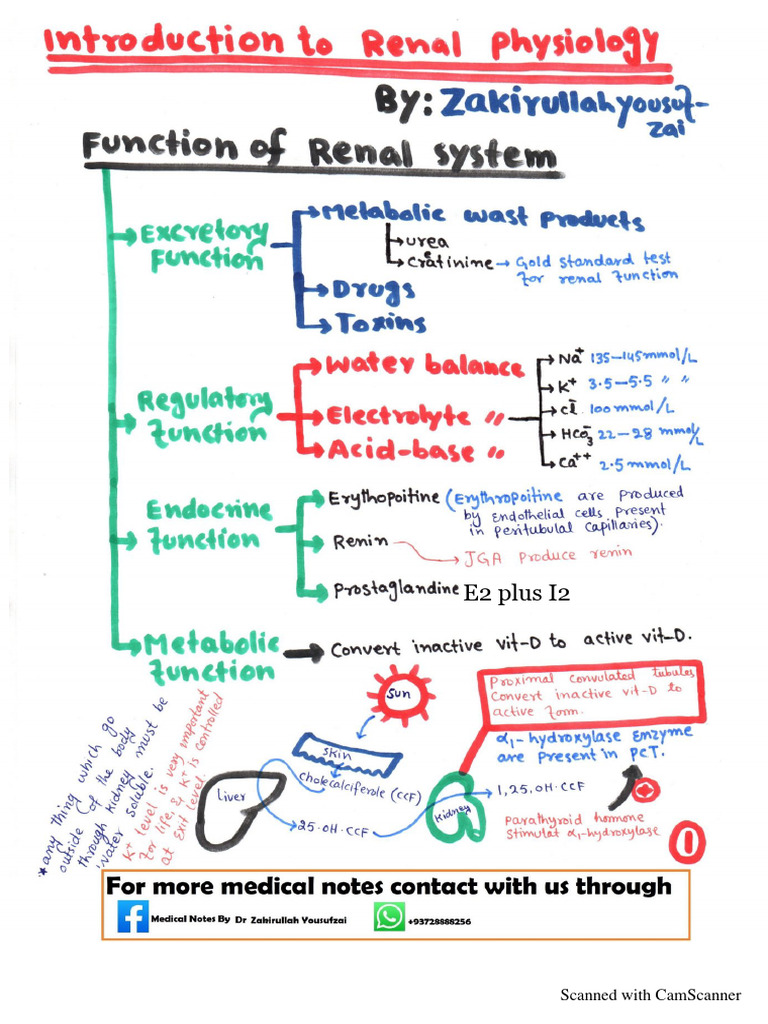 Introduction to Renal Physiology
By: Zakirullah yousuf-
zai
Function of Renal system
Excretory
Function
Metabolic wast products
urea
&
cratinine → Gold standard test
for renal function
Drugs
Toxins
Regulatory
function
Water balance
Electrolyte "
Acid-base "
Na+ 135-145mmol/L
K+ 3.5-5.5 " "
Cl- 100mmol/L
HCO3- 22-28 mmol/L
Ca++ 2.5mmol/L
Endocrine
function
Erythopoitine (Erythropoitine are produced
by endothelial cells present
in peritubulal capillaries).
Renin
JGA produce renin
Prostaglandine E2 plus I2
Metabolic
function
→ Convert inactive vit-D to active vit-D.
Sun
skin
cholecalciferole (CCF)
Liver
25.OH.CCF
kidney
1,25.OH.CCF
Proximal convulated tubules
Convert inactive vit-D to
active form.
α1-hydroxylase enzyme
are present in PCT.
+
Parathyroid hormone
stimulat α1-hydroxylase
* any thing which go
outside of the body
through kidney must be
water soluble.
K+ level is very important
for life, & K+ is controlled
at Exit level.
1
For more medical notes contact with us through
Medical Notes By Dr Zakirullah Yousufzai
+93728888256
Scanned with CamScanner